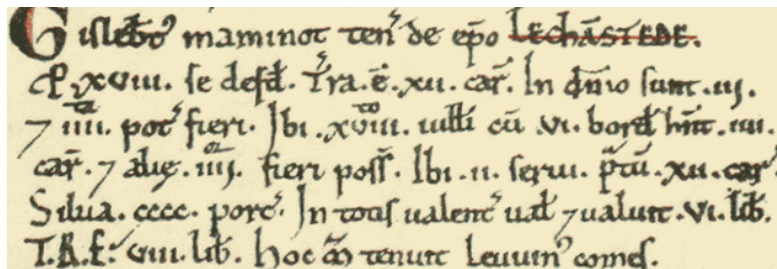 Gisleb̄t' maminot ten' de ep̄o LECHA̅STEDE.
ꝓ. xviii. se defd̄. T'ra. ē. xii. car̄. In dn̄io sunt. iii.
⁊ iiii. pot' fieri. Ibi. xviii. uilli cū. vi. bord̄ hn̄t. iiii.
car̄. ⁊ alię. iiii. fieri poss̄. Ibi. ii. serui. p̄tū. xii. car'.
Silua. cccc. porc'. In totis ualent' ual̄ ⁊ ualuit. vi. lib̄.
T.R.E.' viii. lib̄. hoc m̄ tenuit Leuuin' comes.